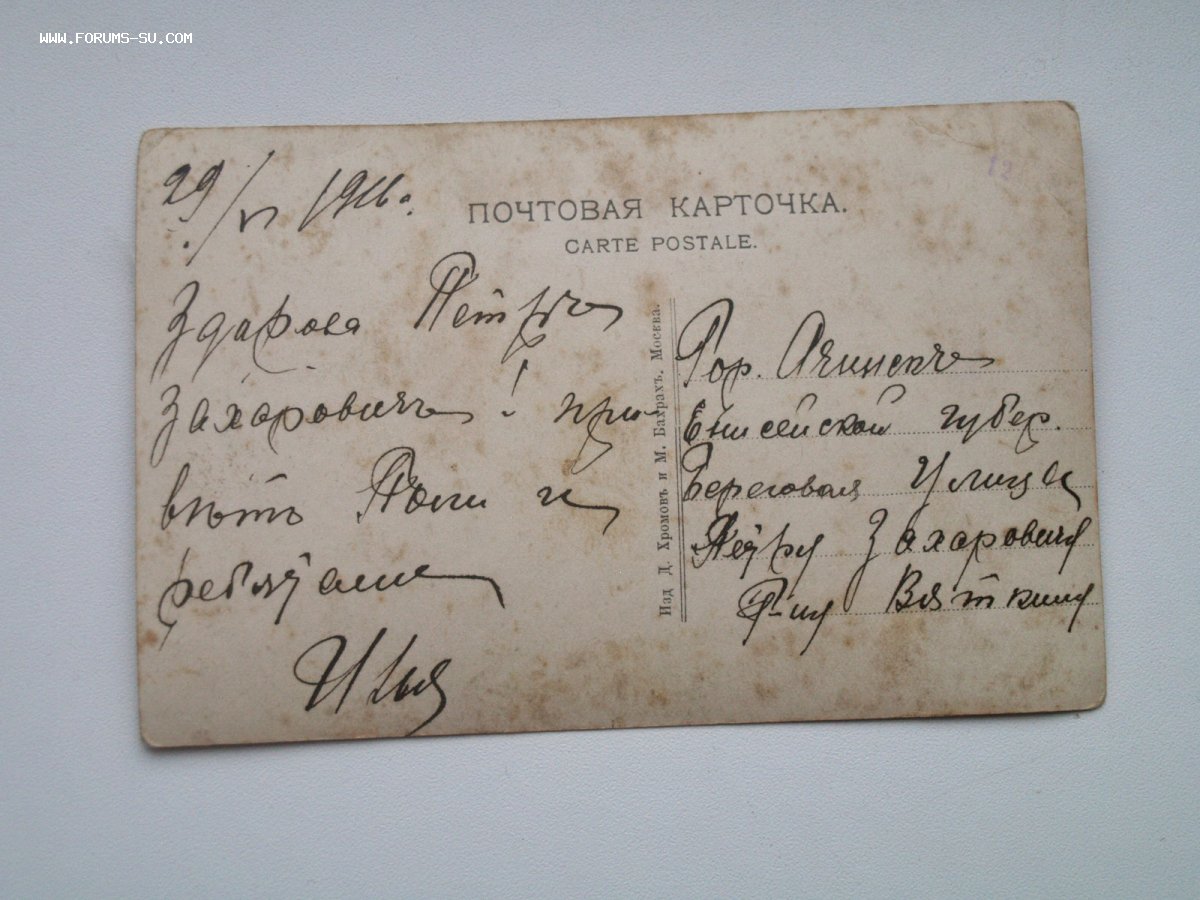 WWW.FORUMS-SU.COM
12
29/VI 1916г.
ПОЧТОВАЯ КАРТОЧКА.
CARTE POSTALE.
Здарова Петръ
Захаровичъ! при-
вѣтъ Поли и
ребятами
Илья
Изд Д. Хромовъ и М. Бахрахъ. Москва.
Гор. Ачинскъ
Енисейской губер.
Береговая Улица
Петру Захаровичу
Г-ну Вяткину